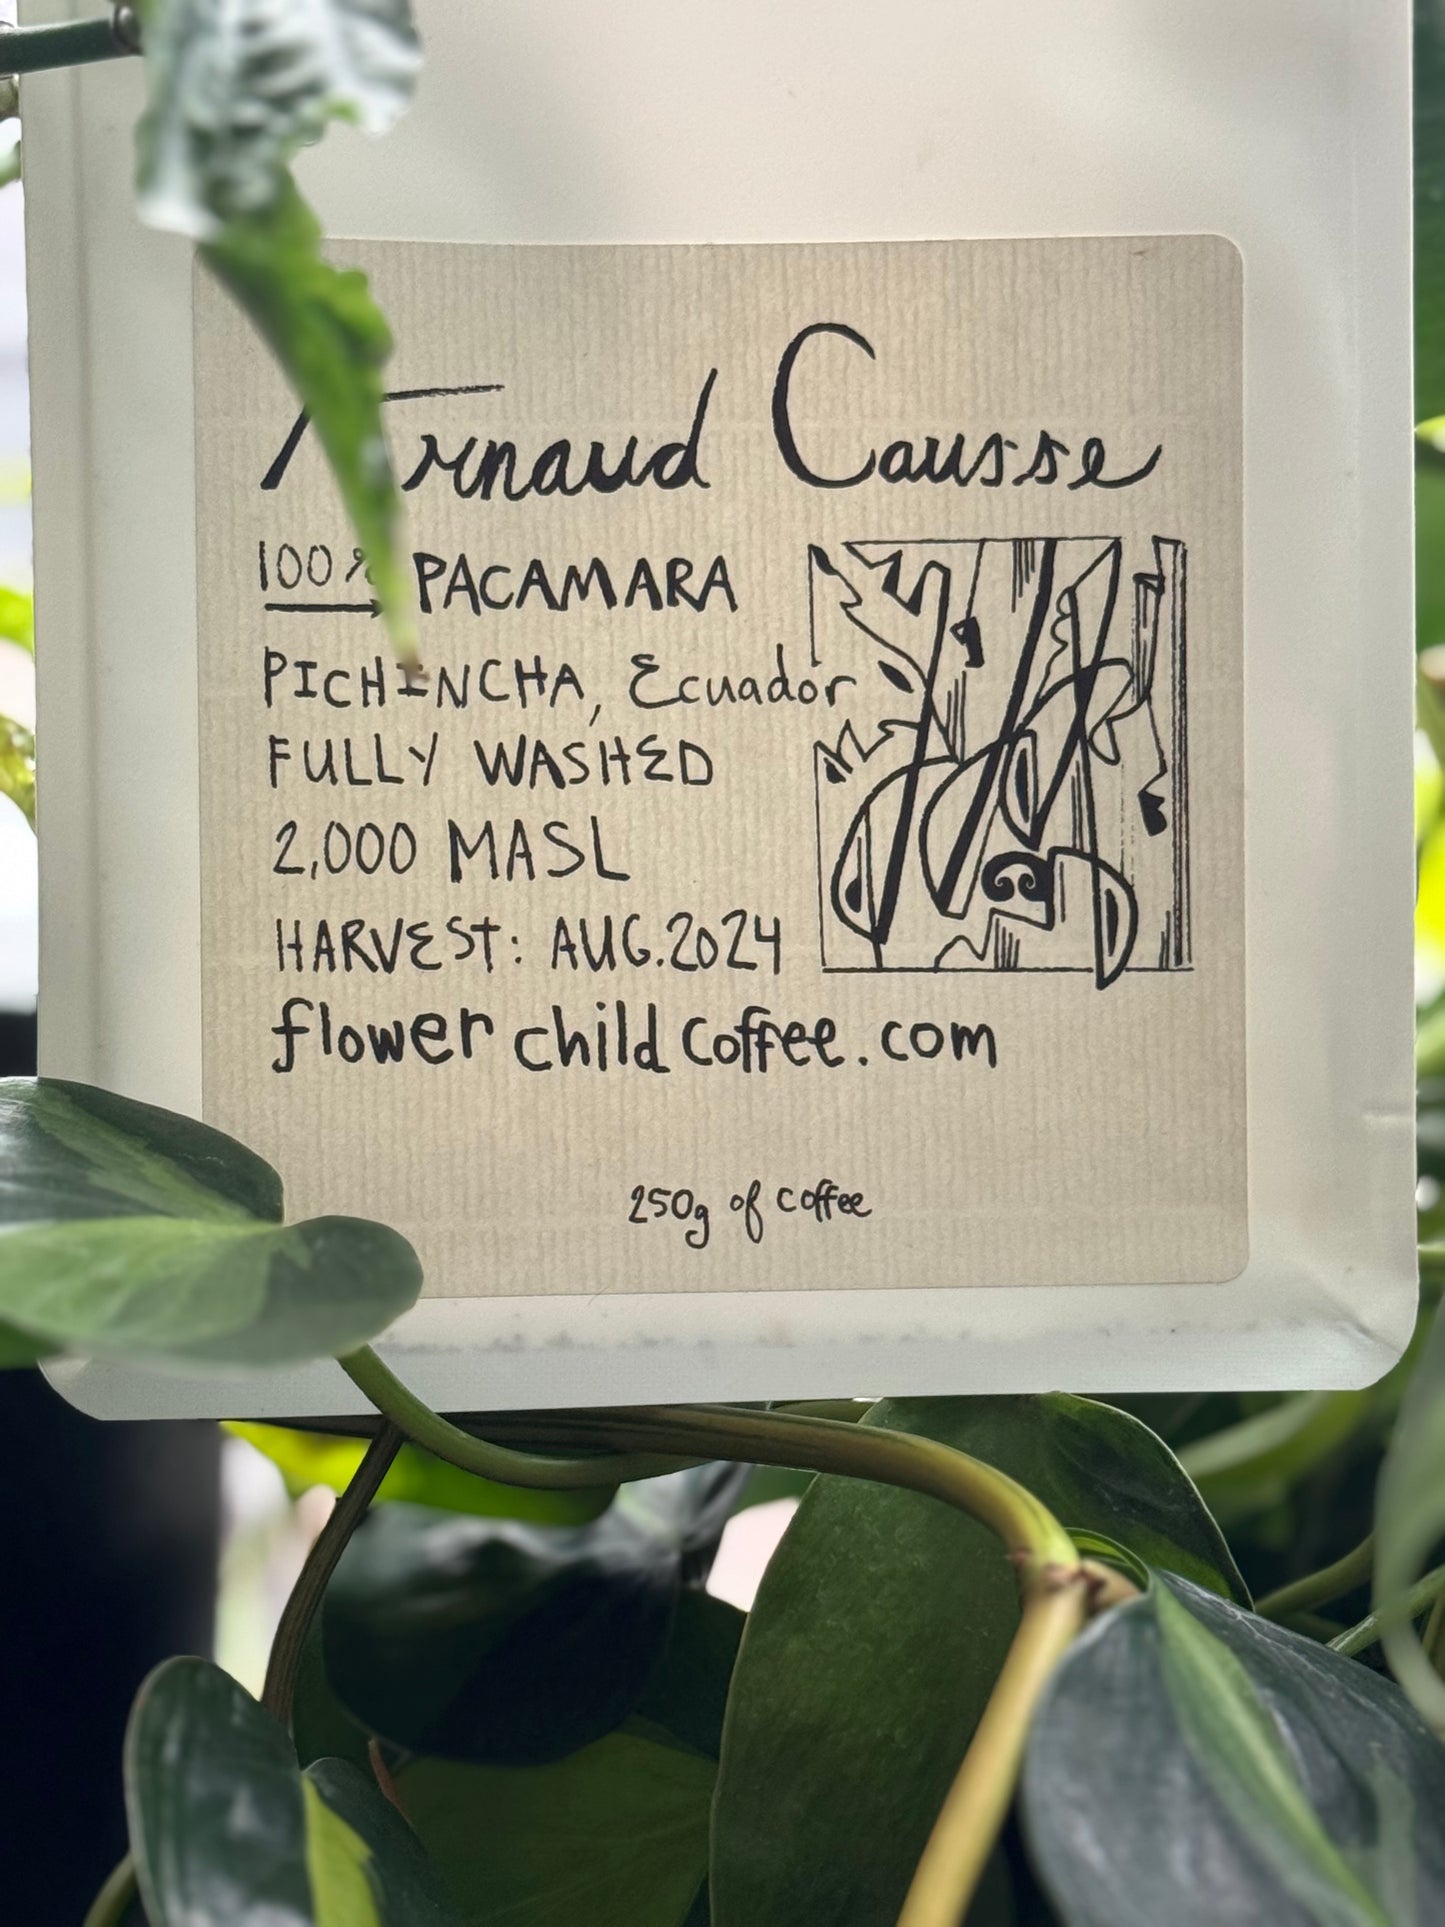 Arnaud Causse
100% PACAMARA
PICHINCHA, Ecuador
FULLY WASHED
2,000 MASL
HARVEST: AUG. 2024
flower child coffee.com
250g of coffee